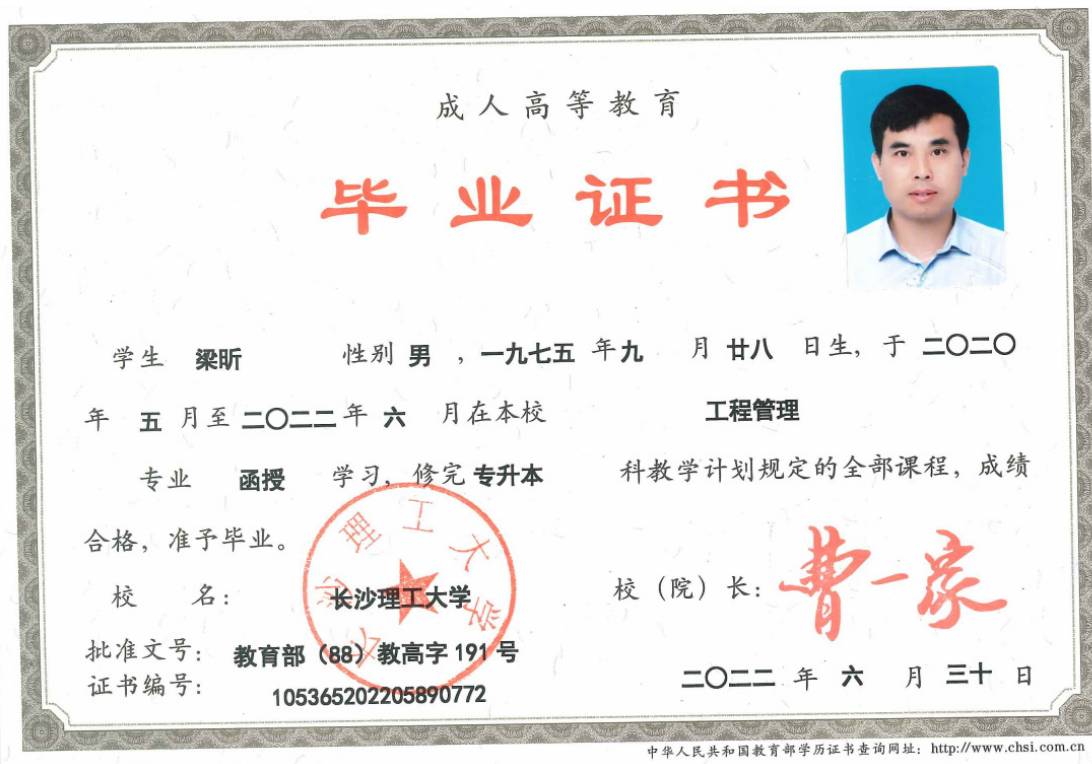 成人高等教育
毕业证书
学生 梁昕 性别 男 ，一九七五 年九 月 廿八 日生，于 二〇二〇
年 五 月至 二〇二二 年 六 月在本校 工程管理
专业 函授 学习，修完 专升本 科教学计划规定的全部课程，成绩
合格，准予毕业。
校 名： 长沙理工大学
长沙理工大学
校（院）长： 曹一家
批准文号： 教育部（88）教高字 191 号
证书编号： 105365202205890772
二〇二二 年 六 月 三十 日
中华人民共和国教育部学历证书查询网址：http://www.chsi.com.cn